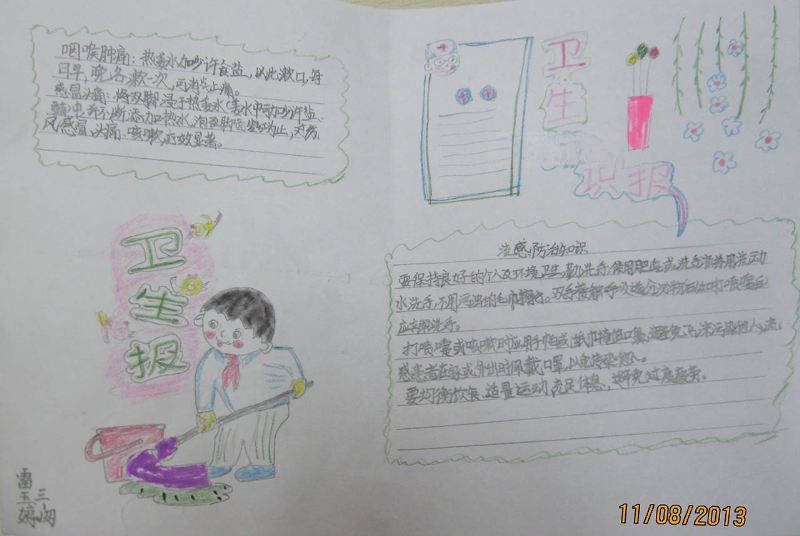 咽喉肿痛：热开水加少许食盐，以此漱口，每
日早，晚，各漱一次，可消炎止痛。
感冒头痛：将双脚浸于热开水（开水中可加少许盐、
醋）中，并不断添加热水，泡至脚
风感冒，头痛，咳嗽，疗效显著。
卫生识报
流感防治知识
要保持良好的个人及环境卫生，勤洗手，使用肥皂或洗手液并用流动
水洗手，不用污浊的毛巾擦手。双手接触呼吸道分泌物后（如打喷嚏后）
应立即洗手。
打喷嚏或咳嗽时应用手帕或纸巾掩住口鼻，避免飞沫污染他人。流
感患者在家或外出时佩戴口罩，以免传染他人。
要均衡饮食、适量运动、充足休息，避免过度疲劳。
卫生报
三
11/08/2013